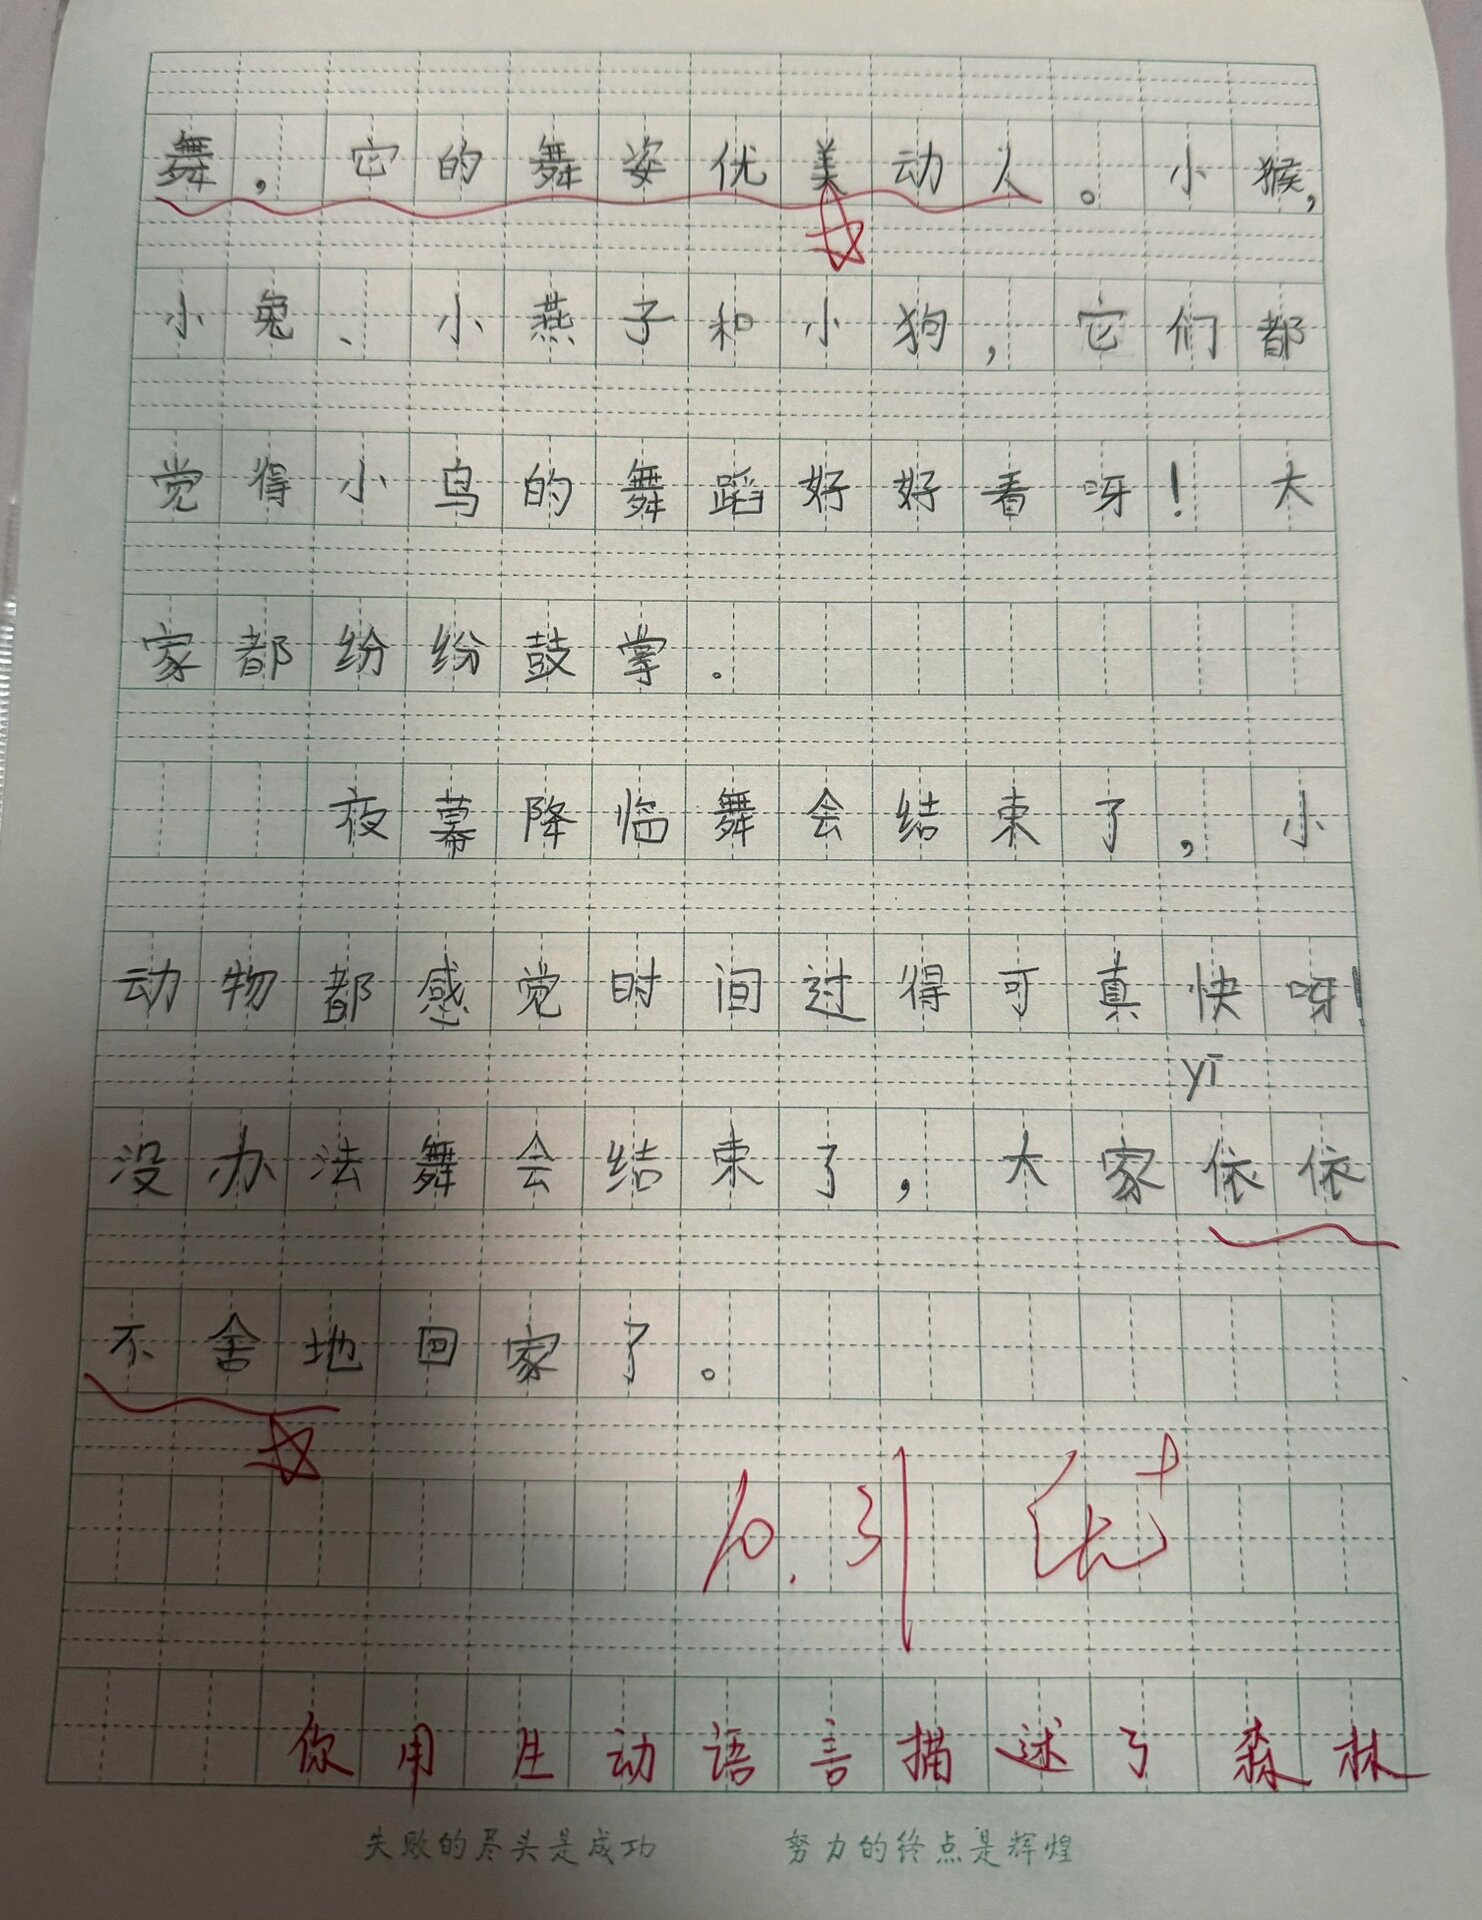 舞，它的舞姿优美动人。小猴，
小兔、小燕子和小狗，它们都
觉得小鸟的舞蹈好好看呀！大
家都纷纷鼓掌。
夜幕降临舞会结束了，小
动物都感觉时间过得可真快呀！
yī
没办法舞会结束了，大家依依
不舍地回家了。
10.31 优+
你用生动语言描述了森林
失败的尽头是成功 努力的终点是辉煌